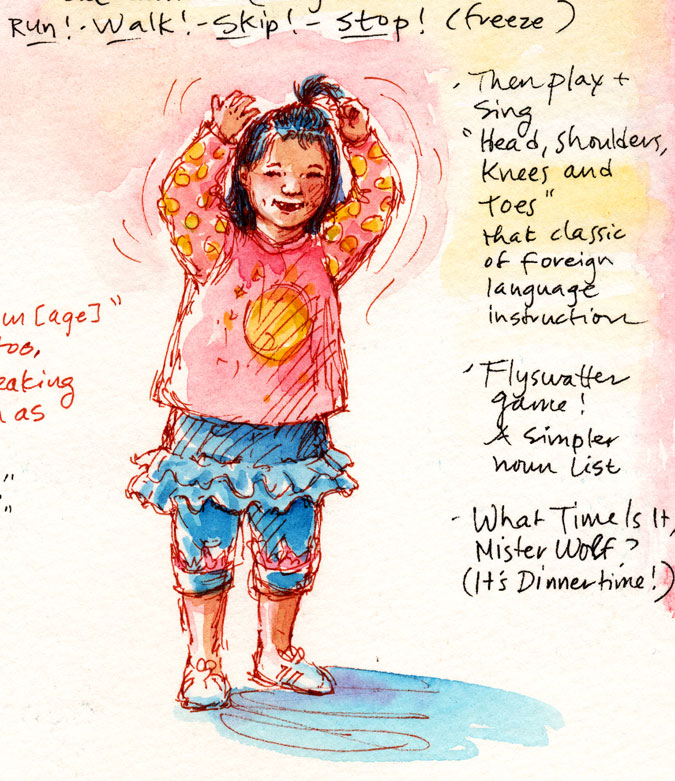 Run! - Walk! - Skip! - Stop! (freeze)
- Then play +
Sing
"Head, shoulders,
Knees and
Toes"
that classic
of foreign
language
instruction
- Flyswatter
game!
A simpler
noun list
- What Time Is It,
Mister Wolf?
(It's Dinnertime!)
[age]"
too,
as